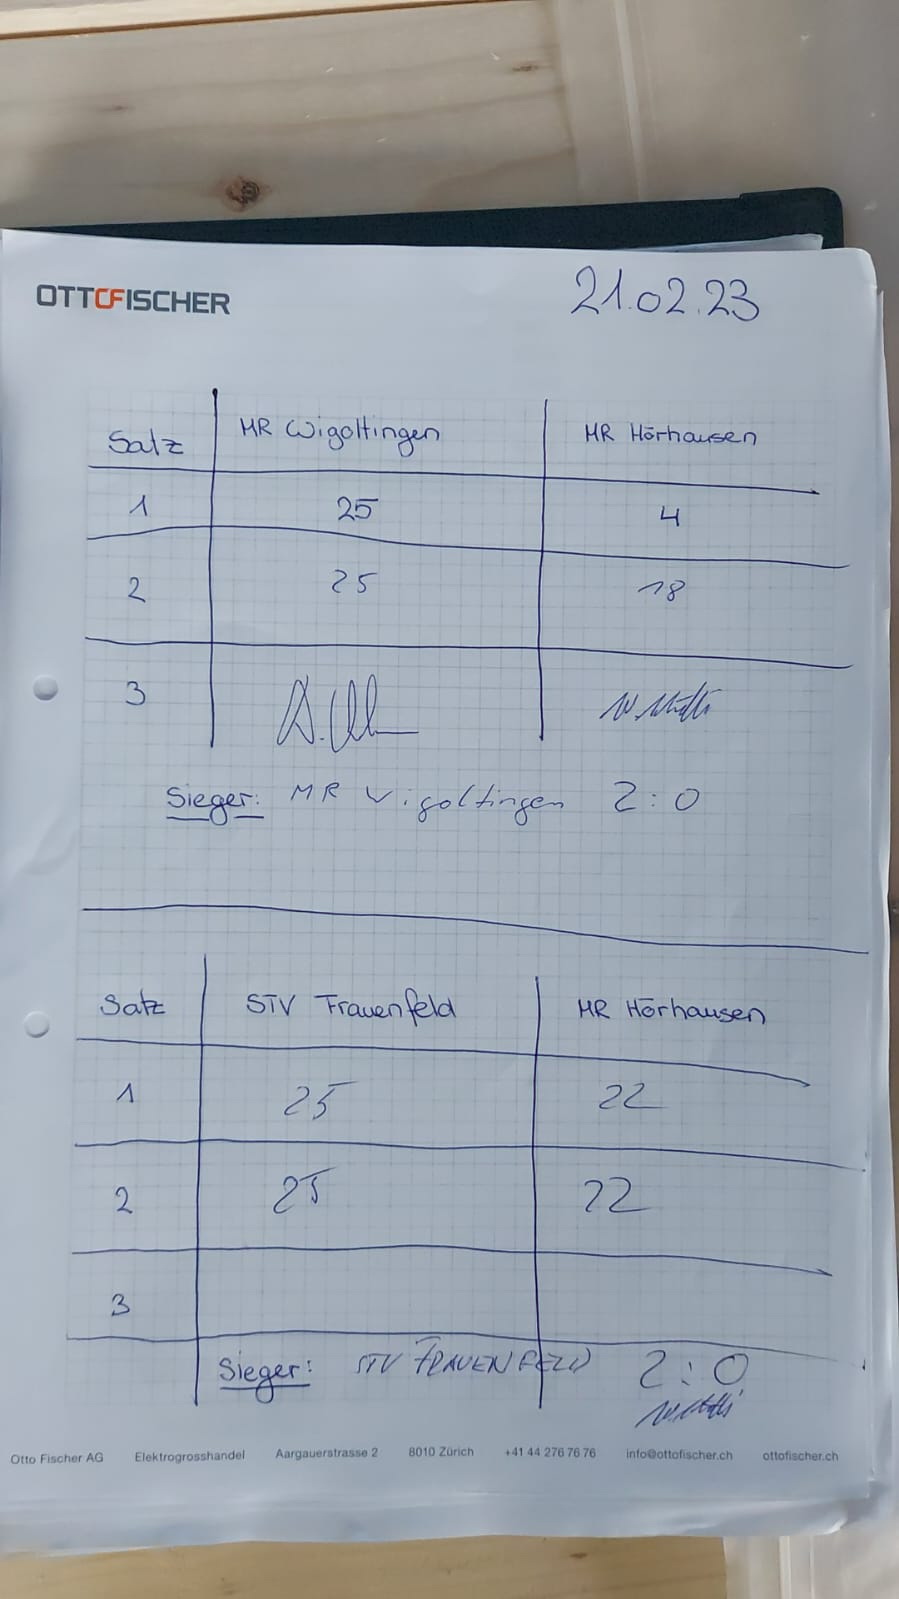 OTTOFISCHER
21.02.23
Satz MR Wigoltingen MR Hörhausen
1 25 4
2 25 18
3
Sieger: MR Wigoltingen 2:0
Satz STV Frauenfeld MR Hörhausen
1 25 22
2 25 22
3
Sieger: STV FRAUENFELD 2:0
Otto Fischer AG Elektrogrosshandel Aargauerstrasse 2 8010 Zürich +41 44 276 76 76 info@ottofischer.ch ottofischer.ch